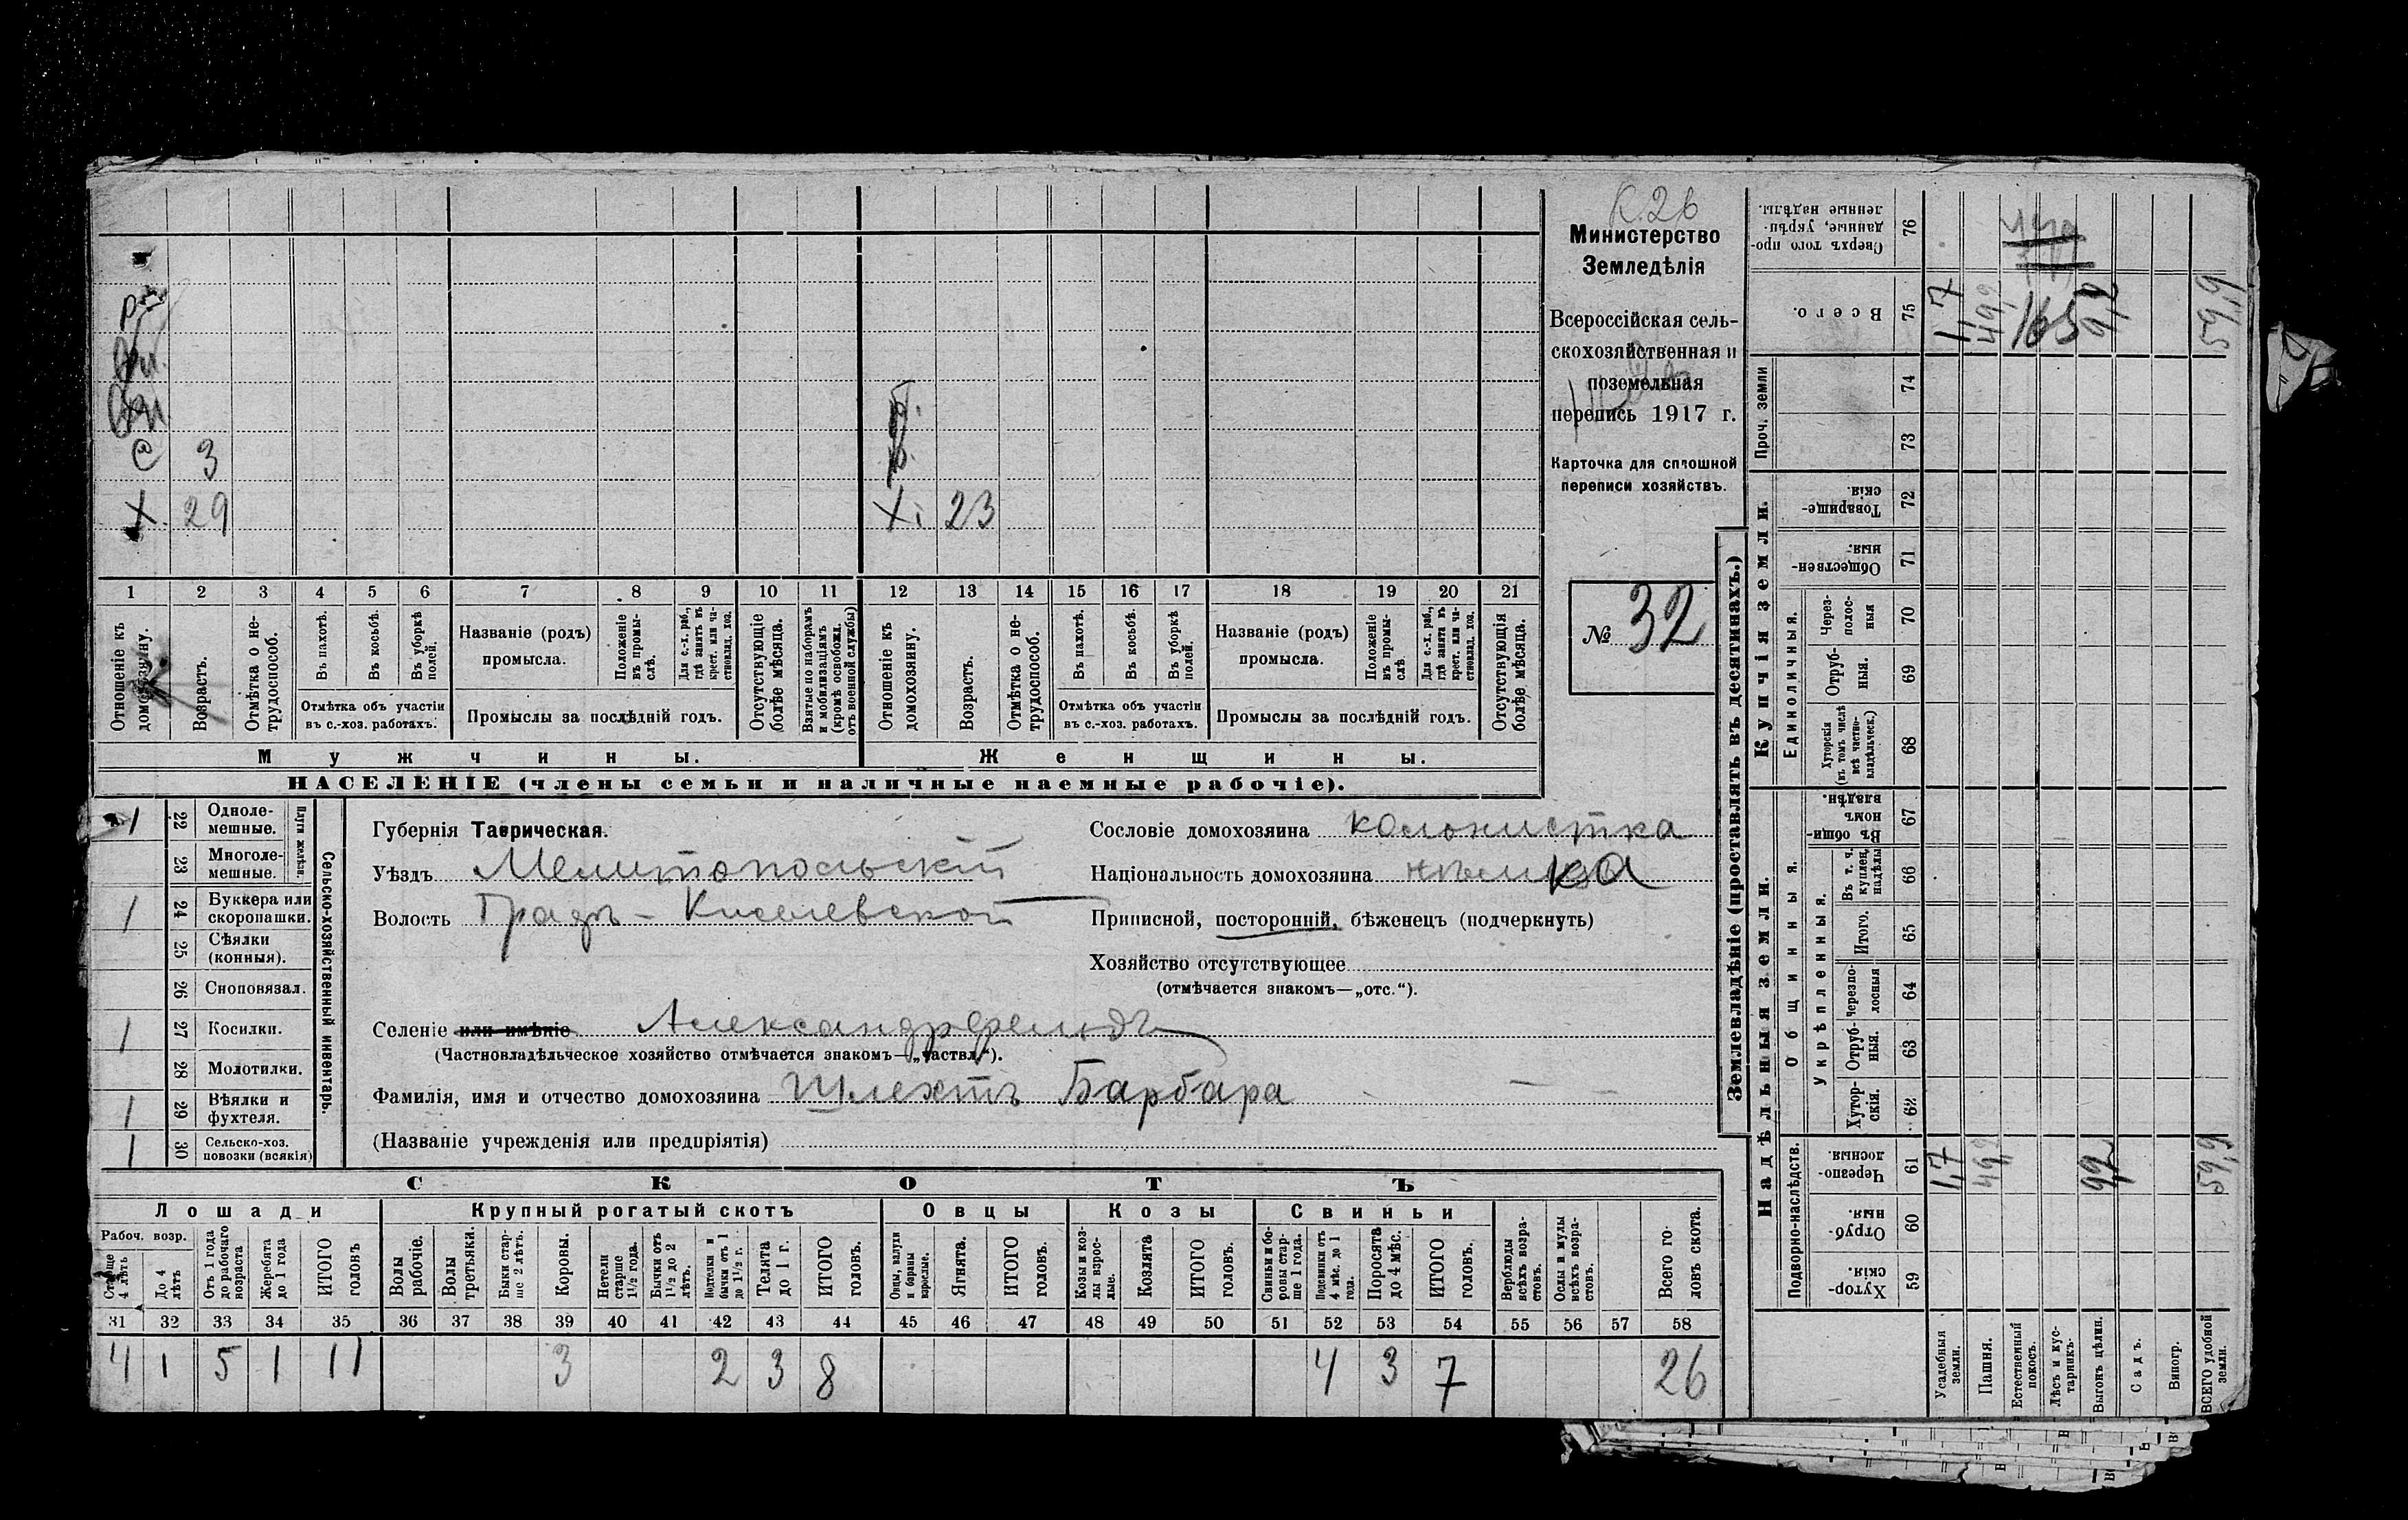 К. 26
Министерство
Земледѣлія
Всероссійская сель-
скохозяйственная и
поземельная
перепись 1917 г.
Карточка для сплошной
переписи хозяйствъ.
№ 32
с 3
X 29
X. 23
1 2 3 4 5 6 7 8 9 10 11 12 13 14 15 16 17 18 19 20 21
Отношеніе къ домохозяину.
Возрастъ.
Отмѣтка о не-трудоспособ.
Въ пахотѣ.
Въ косьбѣ.
Въ уборкѣ полей.
Отмѣтка объ участіи въ с.-хоз. работахъ.
Названіе (родъ) промысла.
Положеніе въ промы-слѣ.
Для с.-х. раб., гдѣ занятъ въ крест. или ча-стновлад. хоз.
Промыслы за послѣдній годъ.
Отсутствующіе болѣе мѣсяца.
Взятые по наборамъ и мобилизаціямъ (кромѣ освобожд. отъ военной службы)
Отношеніе къ домохозяину.
Возрастъ.
Отмѣтка о не-трудоспособ.
Въ пахотѣ.
Въ косьбѣ.
Въ уборкѣ полей.
Отмѣтка объ участіи въ с.-хоз. работахъ.
Названіе (родъ) промысла.
Положеніе въ промы-слѣ
Для с.-х. раб., гдѣ занята въ крест. или ча-стновлад. хоз.
Промыслы за послѣдній годъ.
Отсутствующія болѣе мѣсяца.
Мужчины.
Женщины.
НАСЕЛЕНІЕ (члены семьи и наличные наемные рабочіе).
1 22 Одноле-мешные.
23 Многоле-мешные.
Плуги желѣзн.
1 24 Буккера или скоропашки.
25 Сѣялки (конныя).
26 Сноповязал.
1 27 Косилки.
28 Молотилки.
1 29 Вѣялки и фухтеля.
1 30 Сельско-хоз. повозки (всякія)
Сельско-хозяйственный инвентарь.
Губернія Таврическая.
Уѣздъ Мелитопольскій
Волость Градъ-Киселевской
Селеніе или имѣніе Александрфельдъ
(Частновладѣльческое хозяйство отмѣчается знакомъ—„частвл.“).
Фамилія, имя и отчество домохозяина Шлехтъ Барбара
(Названіе учрежденія или предпріятія)
Сословіе домохозяина колонистка
Національность домохозяина нѣмка
Приписной, посторонній, бѣженецъ (подчеркнуть)
Хозяйство отсутствующее
(отмѣчается знакомъ—„отс.“).
СКОТЪ
Лошади
Крупный рогатый скотъ
Овцы
Козы
Свиньи
Рабоч. возр.
Старше 4 лѣтъ
До 4 лѣтъ
Отъ 1 года до рабочаго возраста
Жеребята до 1 года
ИТОГО головъ
Волы рабочіе.
Волы третьяки.
Быки стар-ше 2 лѣтъ.
Коровы.
Нетели старше 1½ года.
Бычки отъ 1½ до 2 лѣтъ.
Подтелки и бычки отъ 1 до 1½ г.
Телята до 1 г.
ИТОГО головъ.
Овцы, валухи и бараны взрослые.
Ягнята.
ИТОГО головъ.
Козы и коз-лы взрос-лые.
Козлята
ИТОГО головъ.
Свиньи и бо-ровы стар-ше 1 года.
Подсвинки отъ 4 мѣс. до 1 года.
Поросята до 4 мѣс.
ИТОГО головъ.
Верблюды всѣхъ возра-стовъ.
Ослы и мулы всѣхъ возра-стовъ.
Всего го-ловъ скота.
31 32 33 34 35 36 37 38 39 40 41 42 43 44 45 46 47 48 49 50 51 52 53 54 55 56 57 58
4 1 5 1 11 3 2 3 8 4 3 7 26
Землевладѣніе (проставлять въ десятинахъ.)
Надѣльныя земли.
Купчія земли.
Проч. земли
Подворно-наслѣдств.
Общинныя.
Укрѣпленныя.
Единоличныя.
Сверхъ того про-данные, укрѣп-ленные надѣлы. 76
Всего. 75 1,7 49,2 165 9,2 59,9
74
73
Товарище-скія. 72
Обществен-ныя. 71
Через-полос-ныя 70
Отруб-ныя. 69
Хуторскія (въ томъ числѣ всѣ частно-владѣльческ.) 68
Въ общин-номъ владѣн. 67
Въ т. ч. куплен. надѣлы 66
Итого. 65
Черезпо-лосныя 64
Отруб-ныя. 63
Хутор-скія. 62
Черезпо-лосныя. 61 1,7 49,2 9,2 59,9
Отруб-ныя. 60
Хутор-скія. 59
Усадебныя земли.
Пашня.
Естественный покосъ.
Лѣсъ и кус-тарникъ.
Выгонъ цѣлин.
Садъ.
Виногр.
ВСЕГО удобной земли.